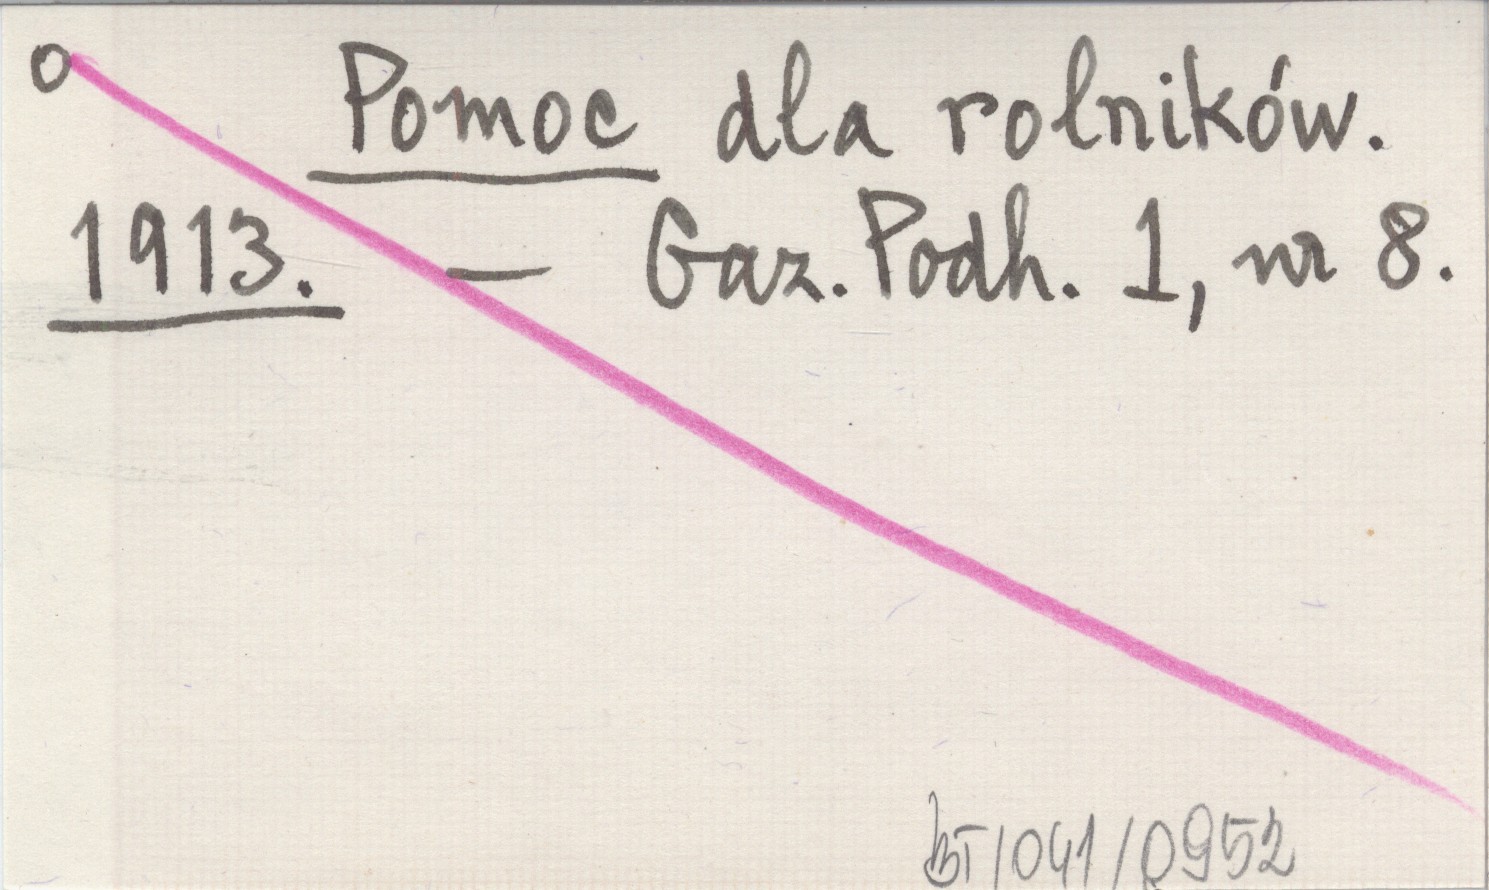 o Pomoc dla rolników.
1913. — Gaz. Podh. 1, nr 8.
BT/041/0952